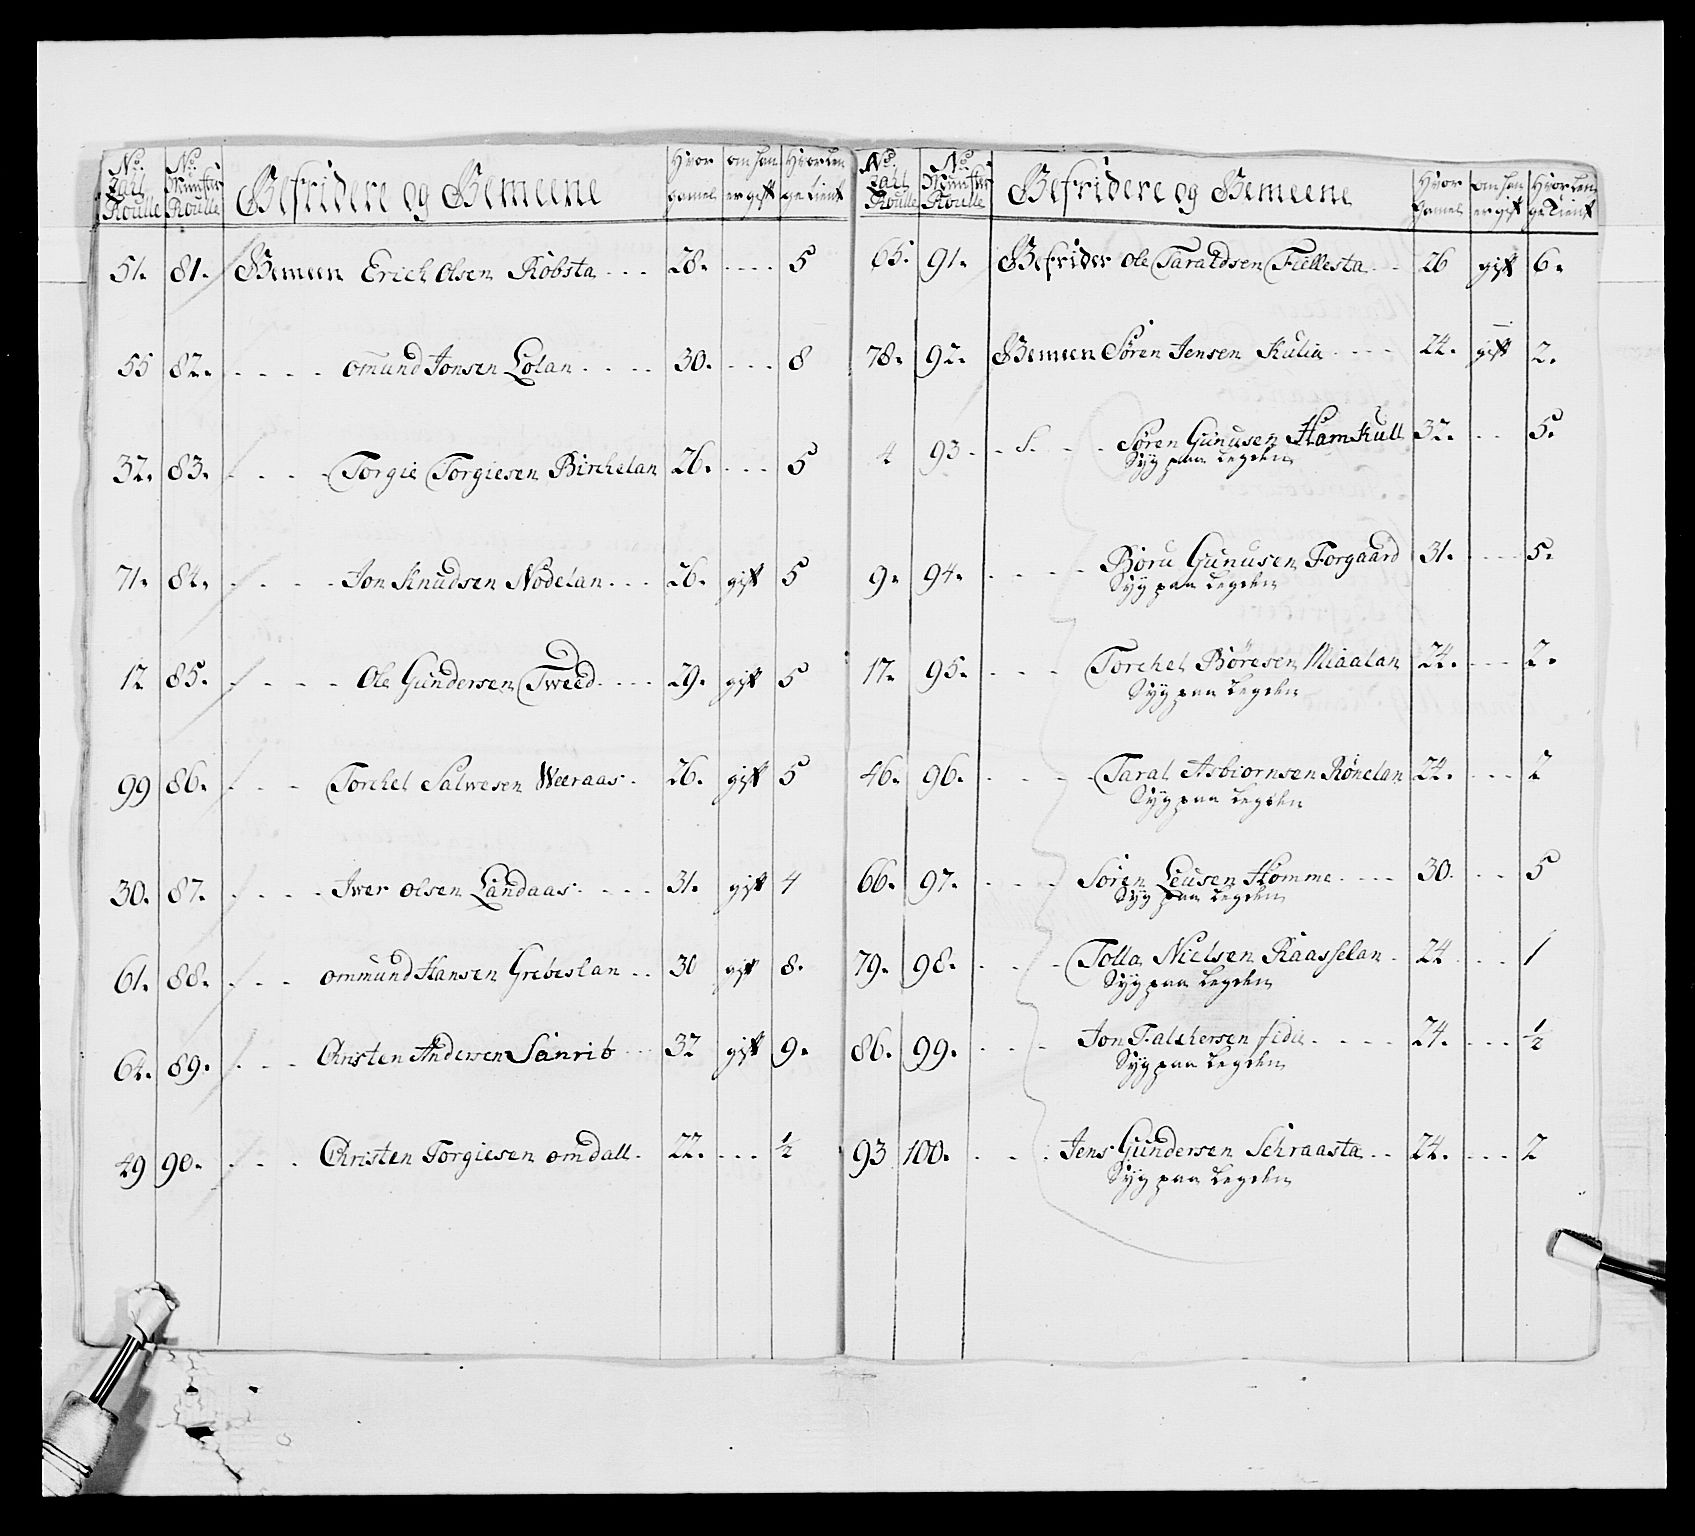 No. Zall Roulle | No. Munster Roulle | Befridere og Gemeene | Hvor gamel | om han er gift | Hvor længe tient
51. 81. Gemeen Erich Olsen Röbsta - - - 28. - - - - 5
55 82. - - - - omund Jonsen Lölan - - - - 30. - - - 8
32. 83. - - - - Torgie Torgiesen Birchelan 26. - - - 5
71. 84. - - - - Jon Knudsen Nödelan - - - 26. gift 5
12 85. - - - - Ole Gundersen Tweed - - - - 29. gift 5
99 86. - - - Torchel Salwesen Weeraas - 26. gift 5
30. 87. - - - - Iver olsen Landaas - - - - 31. gift 4
61. 88. - - - ommund Hansen Grebeslan - - 30 gift 8.
64. 89. - - - Christen Andersen Sanrib - - 32 gift 9.
49 90. - - - Christen Torgiesen omdall - 22. - - - ½
No. Zall Roulle | No. Munster Roulle | Befridere og Gemeene | Hvor gamel | om han er gift | Hvor længe tient
65. 91. Befrider ole Taraldsen Fiellesta - - 26 gift 6.
78. 92. Gemeen Sören Jensen Kulia - - - - 24. gift 2.
4 93. - S. - - Sören Gunusen Hamkull 32. - - 5.
Syg paa Legden
9. 94. - - - - Böru Gunusen Forgaard 31. - - - 5.
Syg paa Legden
17. 95. - - - Torchel Böresen Miaalan 24. - - - 2.
Syg paa Legden
46. 96. - - - - Taral Asbiornsen Rönelan 24. - - - 2
Syg paa Legden
66. 97. - - - Sören Leusen Homme - - - - 30. - - 5
Syg paa Legden
79. 98. - - - Tolla Nielsen Raasselan - 24 - - - 1
Syg paa Legden
86. 99. - - - Jon Falchersen fidie - - - - - 24. - - - ½
Syg paa Legden
93 100. - - - Jens Gundersen Schraasta - - 24. - - - 2
Syg paa Legden